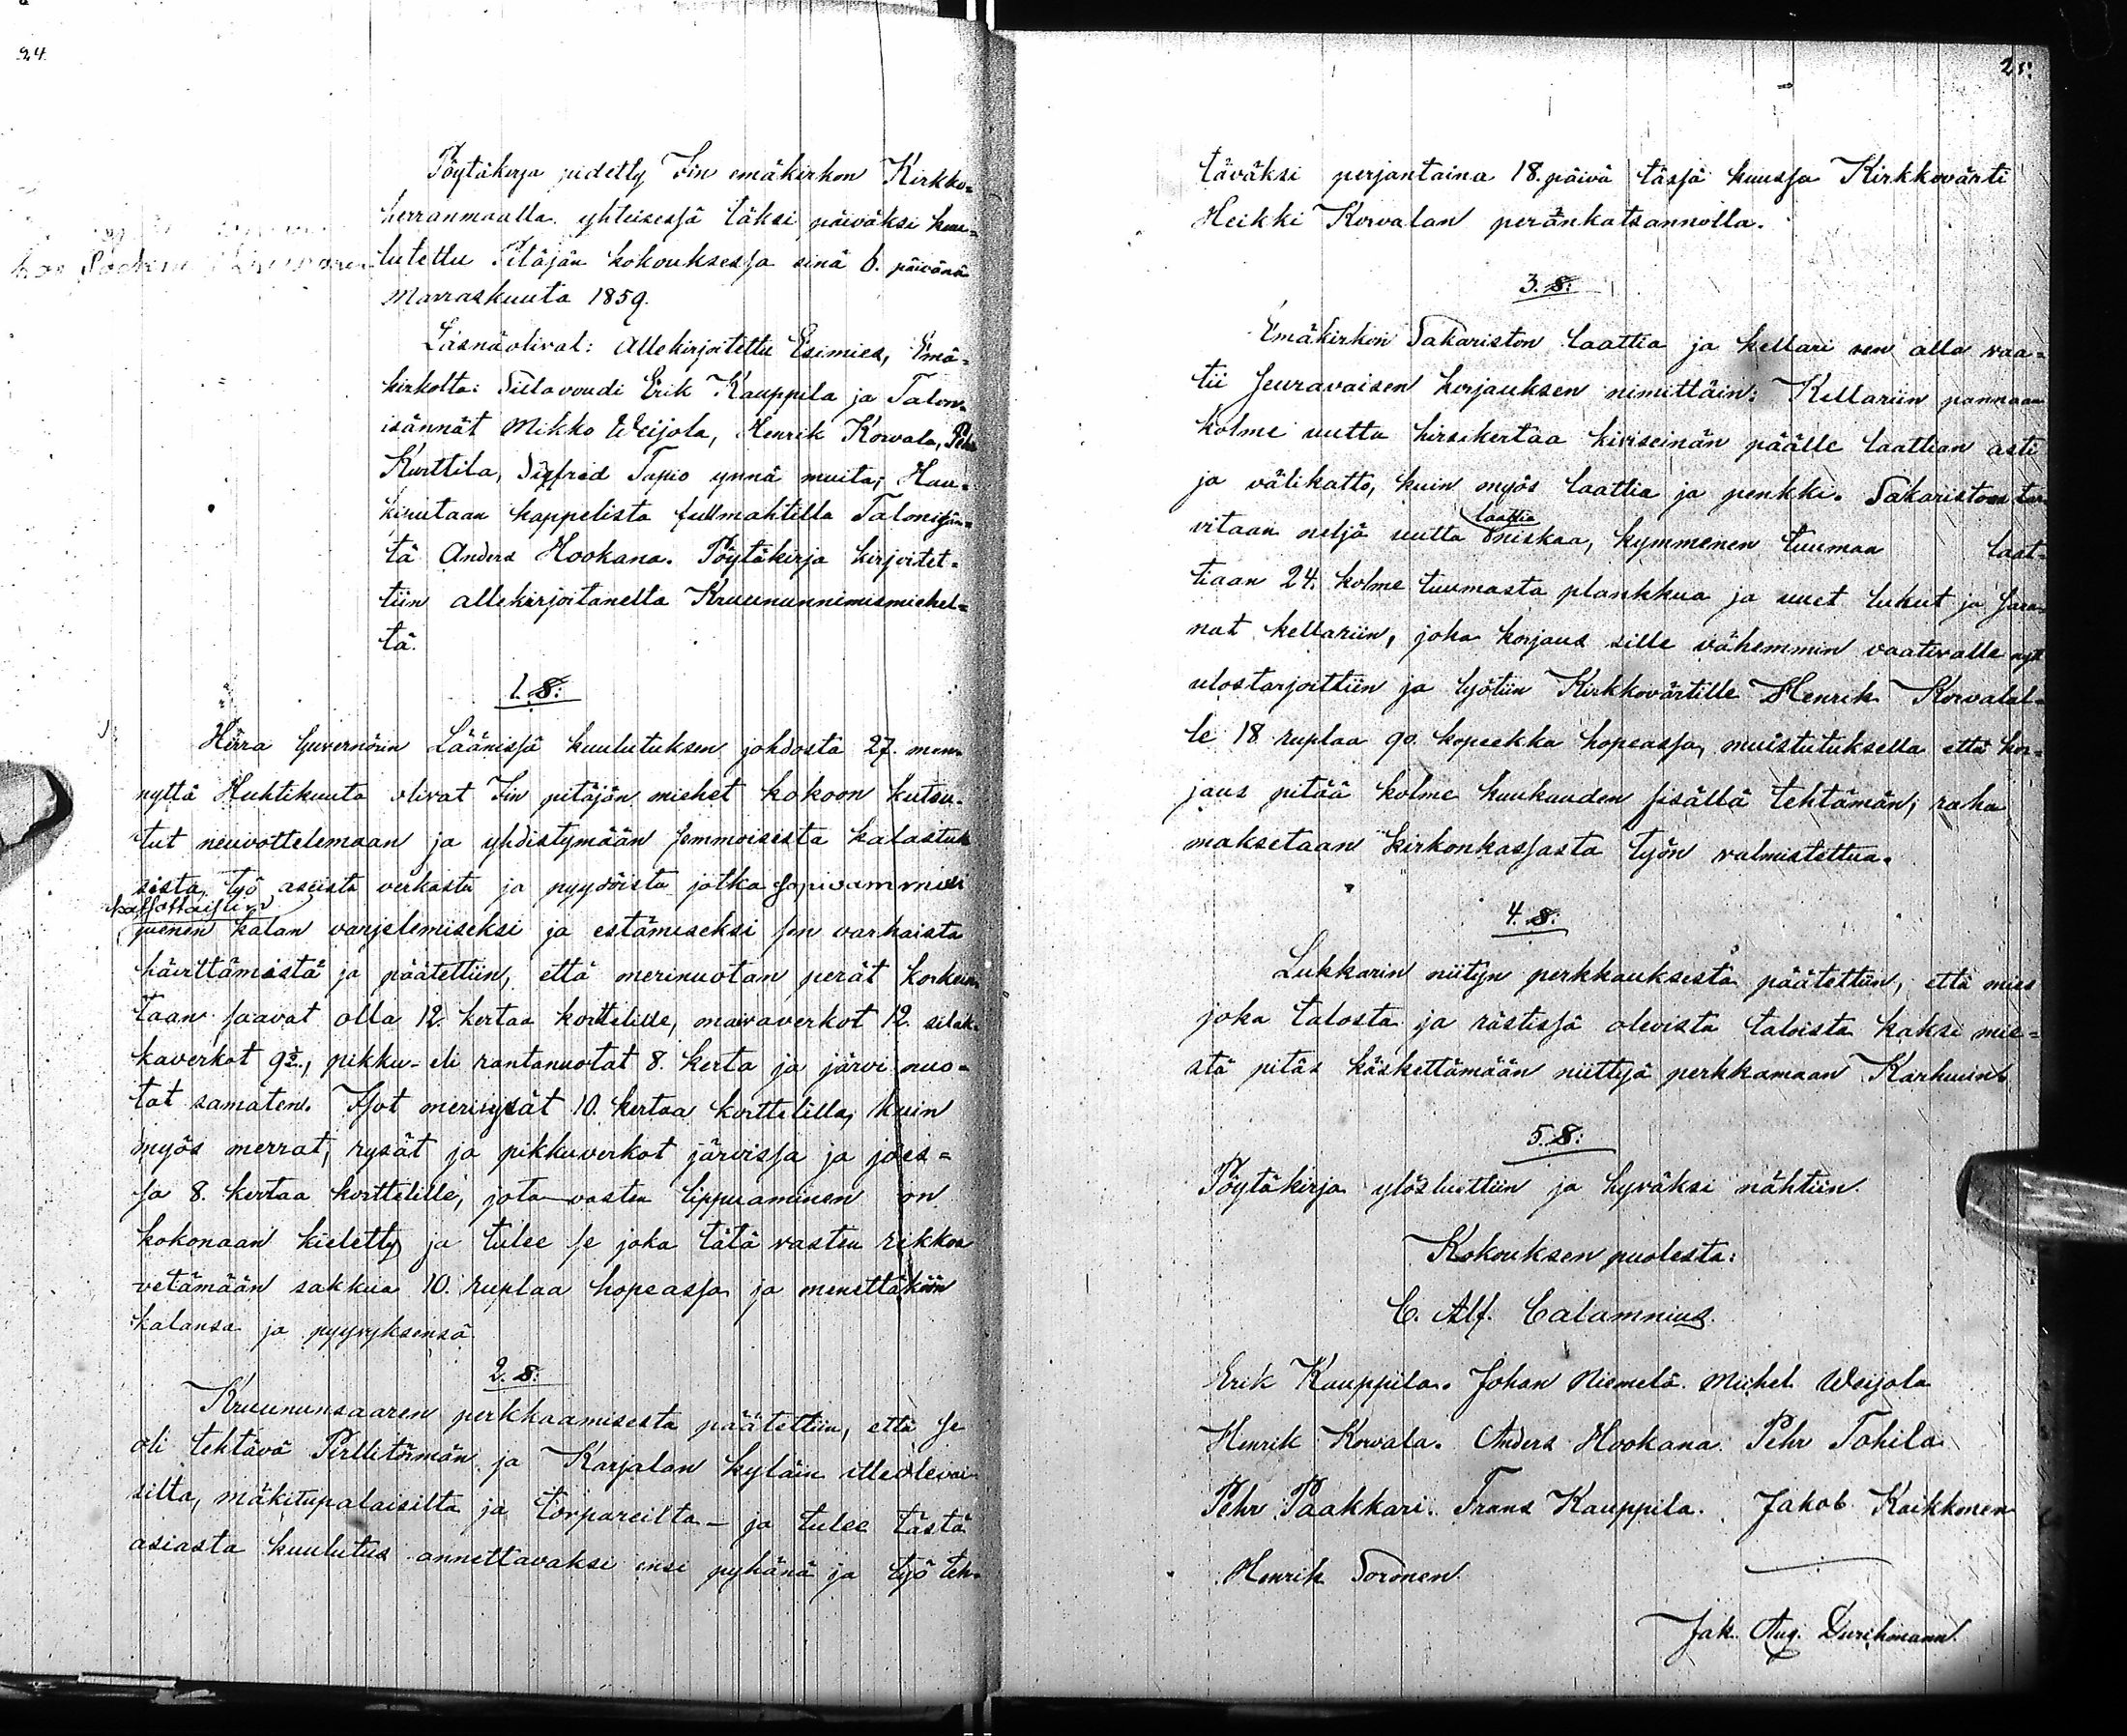 24.
Pöytäkirja pidetty Iin emäkirkon Kirkko=
herranmaalla yhteisessä täksi päiväksi kuu=
lutettu Pitäjän kokouksessa sinä 6. päivänä
Marraskuuta 1859.
Läsnäolivat: Allekirjoitettu Esimies, Emä=
kirkolta: Siltavoudi Erik Kauppila ja Talon=
isännät Mikko Weijola, Henrik Korvala, Pehr
Kurttila, Sigfrid Tapio ynnä muita; Hau=
kiputaan kappelista fullmahtilla Talonisän=
tä Anders Hookana. Pöytäkirja kirjoitet=
tiin allekirjoitanelta Kruununnimismiehel=
tä.
1. §:
Herra Guvernörin Läänissä kuulutuksen johdosta 27. men=
nyttä Huhtikuuta olivat Iin pitäjän miehet kokoon kutsu=
tut neuvottelemaan ja yhdistymään semmoisesta kalastuk
sista, työ aseista verkasta ja pyydöistä jotka sopivammasi
katsottaisiin
pienen kalan varjelemiseksi ja estämiseksi sen varhaista
hävittämistä ja päätettiin, että merinuotan perät korkein
taan saavat olla 12. kertaa korttelille, maivaverkot 12. silak=
kaverkot 9½., pikku- eli rantanuotat 8. kerta ja järvi nuo=
tat samaten. Isot merirysät 10. kertaa korttelilla, kuin
myös merrat, rysät ja pikkuverkot järvissa ja joes=
sa 8. kertaa korttelille, jota vasten lippuaminen on
kokonaan kieletty ja tulee se joka tätä vasten rikkoa
vetämään sakkua 10. ruplaa hopeassa ja menettäköön
kalansa ja pyyryksensä
2. §:
Kruununsaaren perkkaamisesta päätettiin, että se
oli tehtävä Pirttitörmän ja Karjalan kyläin itteolevai
silta, mäkitupalaisilta ja torpareilta – ja tulee tästä
asiasta kuulutus annettavaksi ensi pyhänä ja työ teh=
25.
täväksi perjantaina 18. päivä tässä kuussa Kirkkovärti
Heikki Korvalan peränkatsannolla.
3. §:
Emäkirkon Sakariston laattia ja kellari sen alla vaa=
tii seuravaisen korjauksen nimittäin: Kellariin pannaan
kolme uutta hirsikertaa kiviseinän päälle laattian asti
ja välikatto, kuin myös laattia ja penkki. Sakaristoon tar
laattia
vitaan neljä uutta niskaa, kymmenen tuumaa laat=
tiaan 24. kolme tuumasta plankkua ja uuet lukut ja sara=
nat kellariin, joka korjaus sille vähemmin vaativalle nyt
ulostarjottiin ja lyötiin Kirkkovärtille Henrik Korvalal=
le 18 ruplaa 90. kopeekka hopeassa, muistutuksella että kor=
jaus pitää kolme kuukauden sisällä tehtämän; raha
maksetaan kirkonkassasta työn valmistettua.
4. §:
Lukkarin niityn perkkauksesta päätettiin, että mies
joka talosta ja rästissä olevista taloista kaksi mies=
stä pitäs käskettämään niittyä perkkamaan Karhuun.
5. §:
Pöytäkirja ylösluettiin ja hyväksi nähtiin.
Kokouksen puolesta:
C. Alf. Calamnius.
Erik Kauppila. Johan Niemelä. Michel Weijola
Henrik Korvala. Anders Hookana. Pehr Tohila
Pehr Paakkari. Frans Kauppila. Jakob Kaikkonen
Henrik Soronen.
Jak. Aug. Durchmann.